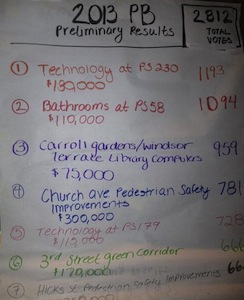 2013 PB
Preliminary Results
2812
TOTAL
VOTES
① Technology at PS 230 1193
$180,000
② Bathrooms at PS 58 1094
$110,000
③ Carroll gardens/windsor 959
Terrace Library Computers
$75,000
④ Church ave Pedestrian Safety 781
Improvements
$300,000
⑤ Technology at PS 179
$115,000
⑥ 3rd Street green Corridor
$170,000
⑦ Hicks St Pedestrian Safety Improvements